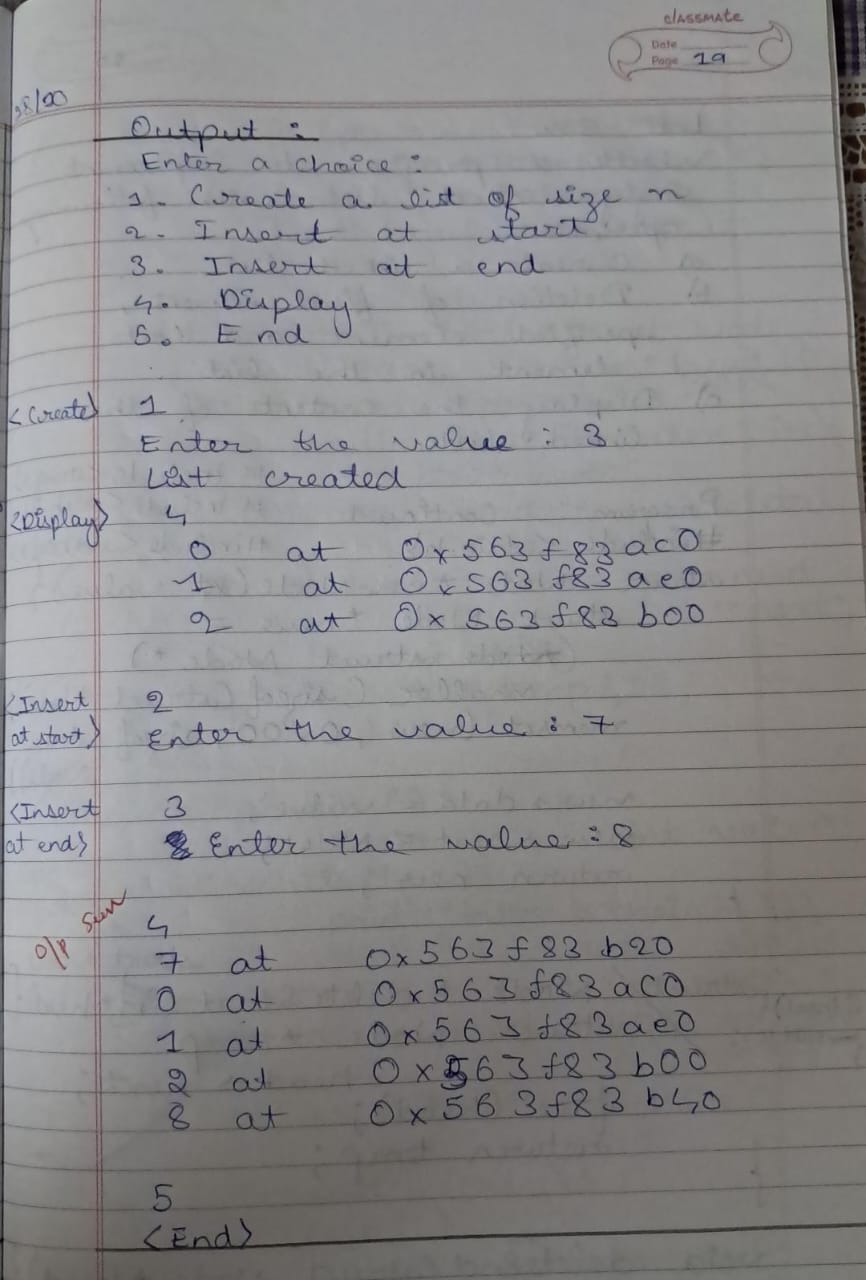 classmate
Date
Page 19
Output :
Enter a choice :
1. Create a list of size n
2. Insert at start
3. Insert at end
4. Display
5. End
<Create> 1
Enter the value : 3
List created
<Display> 4
0 at 0x563f83ac0
1 at 0x563f83ae0
2 at 0x563f83b00
<Insert at start> 2
Enter the value : 7
<Insert at end> 3
Enter the value : 8
o/p seen
4
7 at 0x563f83b20
0 at 0x563f83ac0
1 at 0x563f83ae0
2 at 0x563f83b00
8 at 0x563f83b40
5
<End>